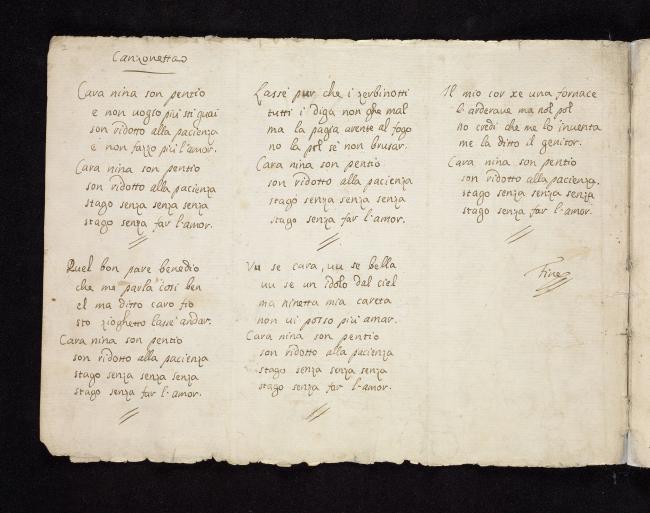 Canzonetta
Cara nina son pentio
e non voglo piu sti guai
son ridotto alla pacienza
e non fazzo più l'amor.
Cara nina son pentio
son ridotto alla pacienza
stago senza senza senza
stago senza far l'amor.
Quel bon pare benedio
che me parla cosi ben
el ma ditto caro fio
sto zioghetto lasse andar.
Cara nina son pentio
son ridotto alla pacienza
stago senza senza senza
stago senza far l'amor.
Lasse pur che i zerbinotti
tutti i diga non ghe mal
ma la pagia arente al fogo
no la pol se non brusar.
Cara nina son pentio
son ridotto alla pacienza
stago senza senza senza
stago senza far l'amor.
Vu se cara, vu se bella
vu se un idolo dal ciel
ma ninetta mia careta
non vi posso più amar.
Cara nina son pentio
son ridotto alla pacienza
stago senza senza senza
stago senza far l'amor.
Il mio cor xe una fornace
l'arderave ma nol pol
no credi che me lo inventa
me la ditto il genitor.
Cara nina son pentio
son ridotto alla pacienza.
stago senza senza senza
stago senza far l'amor.
Fine